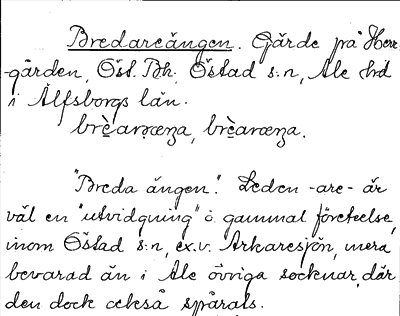 Bredareängen. Gärde på Herr-
gården, Öst. Bh. Östad s:n, Ale hd
i Älfsborgs län.
brèaræŋa, brèaræŋa.
"Breda ängen". Leden -are- är
väl en "utvidgning" o. gammal företeelse
inom Östad s:n, ex.v. Arkaresjön, mera
bevarad än i Ale övriga socknar, där
den dock också spårats.